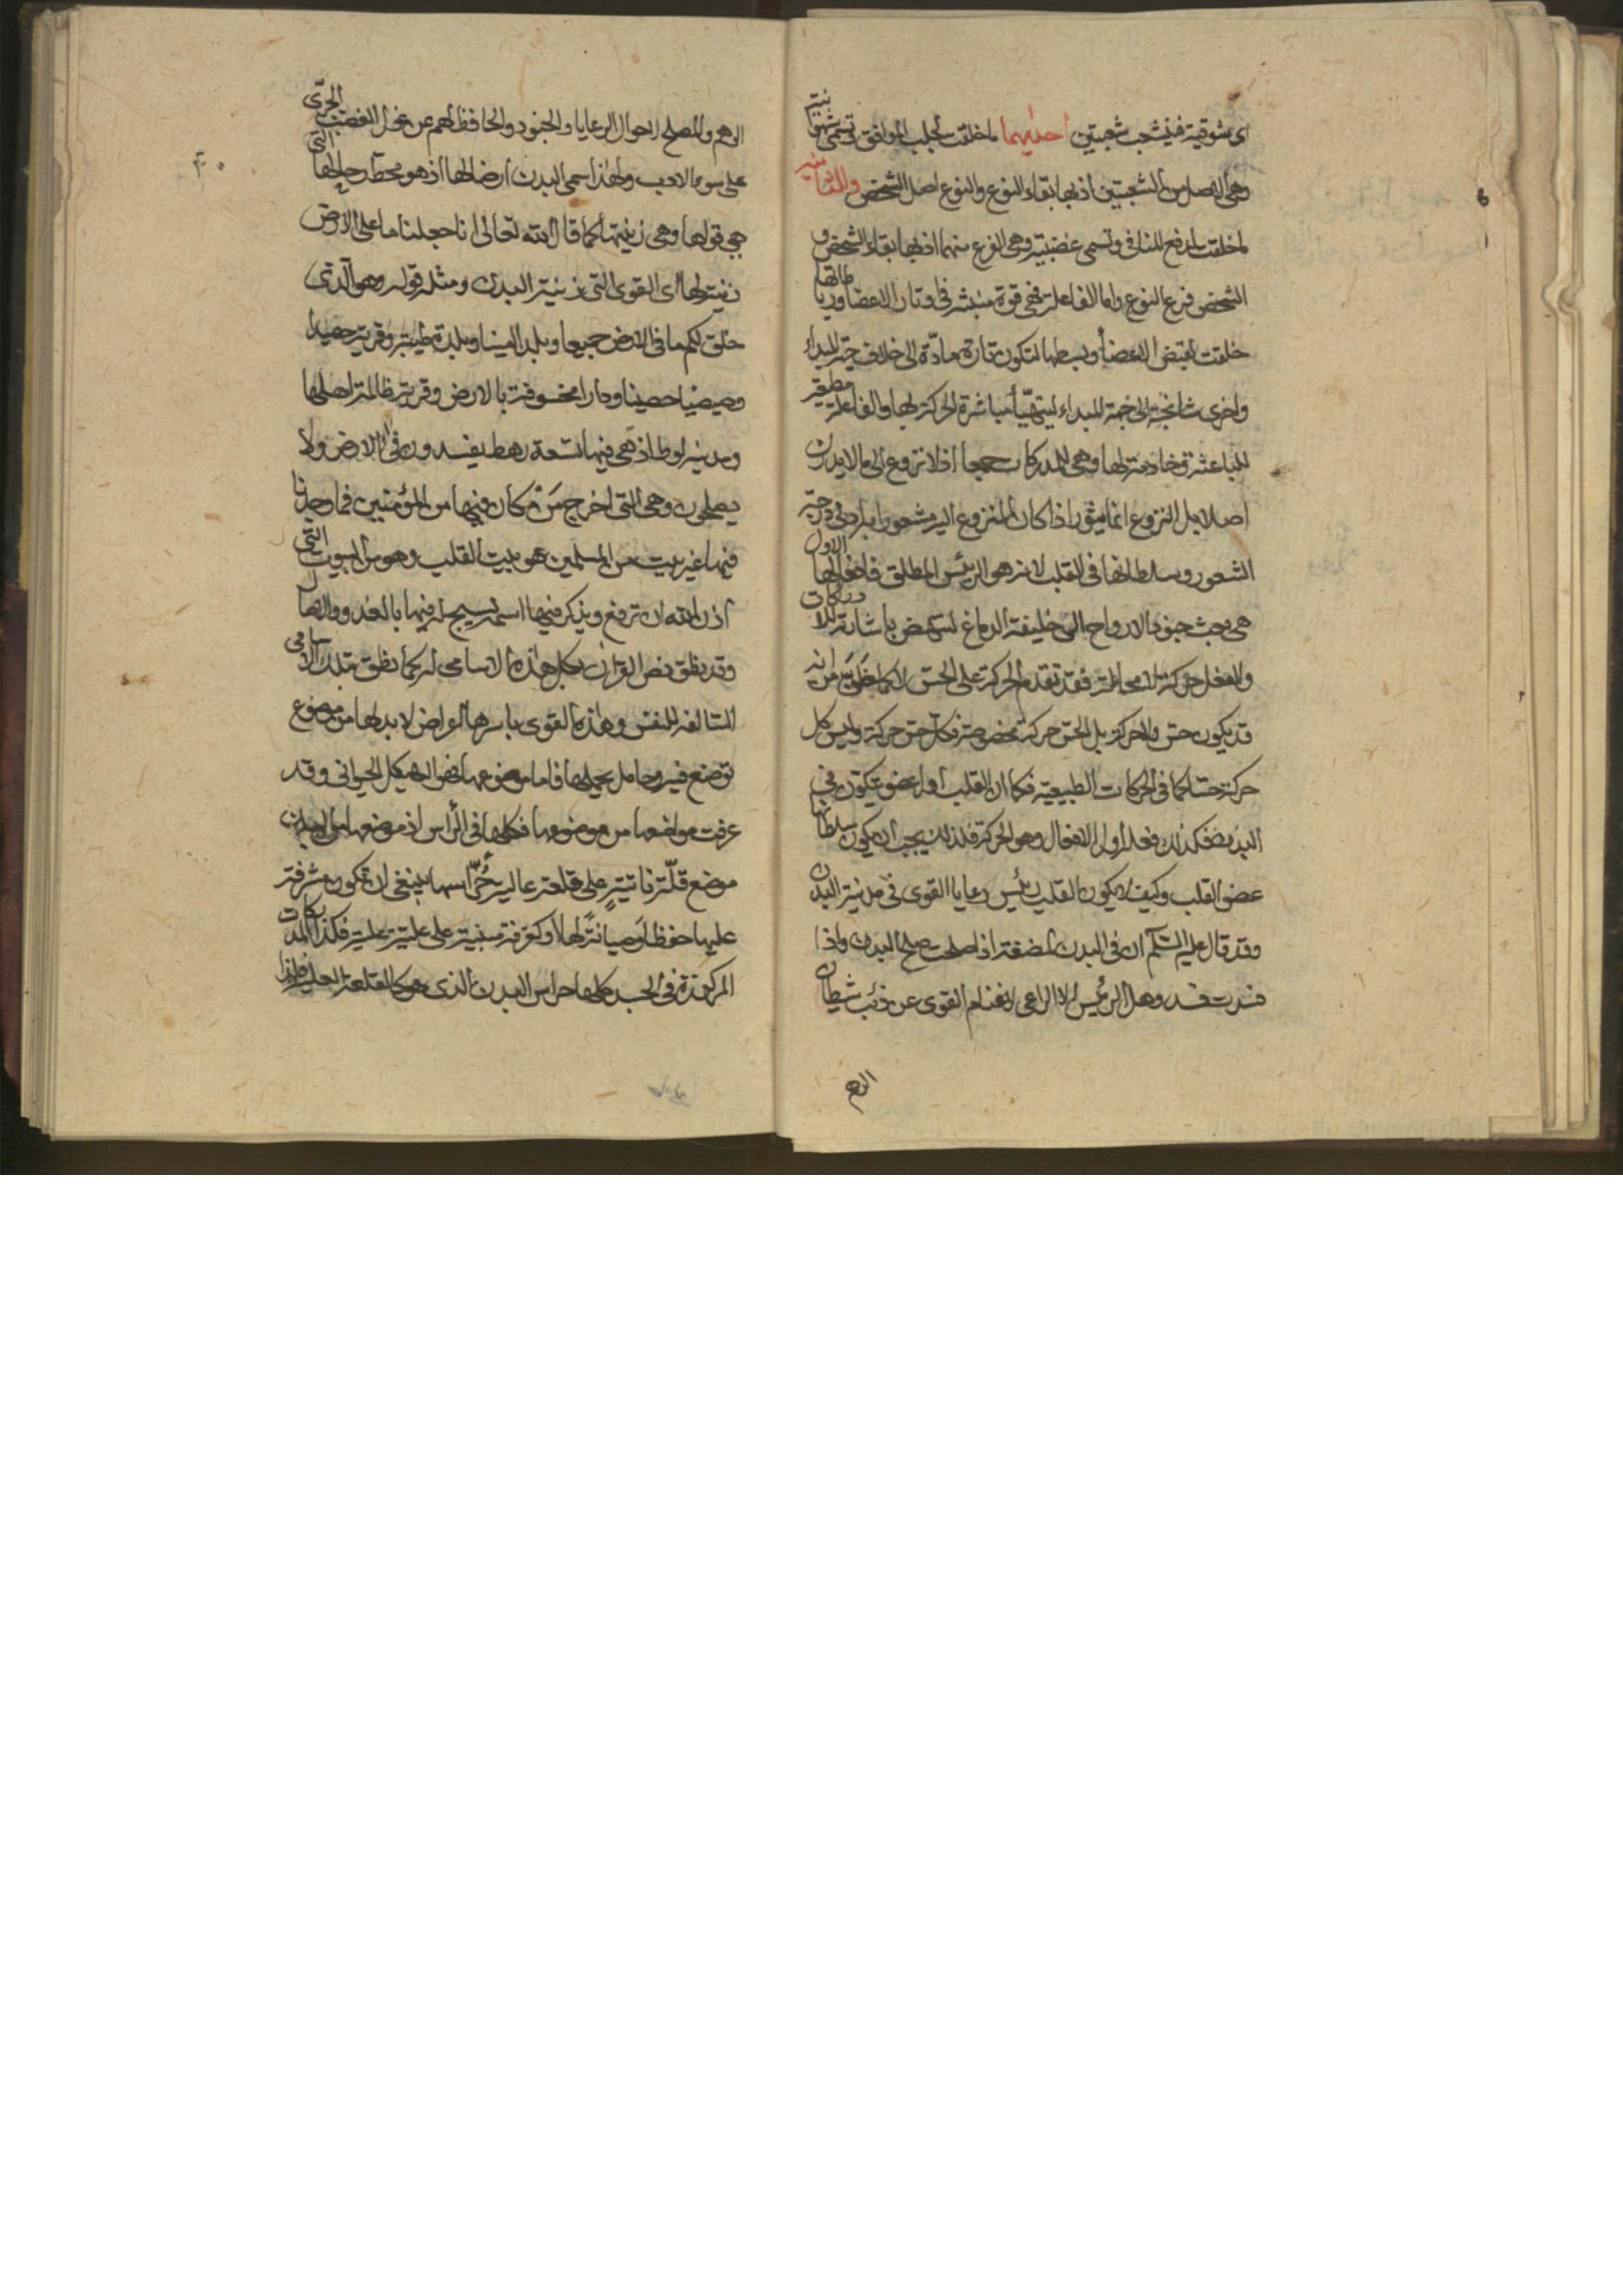 اى شوقية فينشعب شعبتين احديهما ما خلقت لجلب الموافق وتسمى شهوانية
وهى الاصل من الشعبتين اذ بها بقاء النوع والنوع اصل الشخص والثانية
ما خلقت لدفع المنافى وتسمى غضبية وهى الفرع منهما اذ بها بقاء الشخص و
الشخص فرع النوع واما الفاعلة فهى قوة منبثة فى اوتار الاعضا ورباطاتها
خلقت لقبض الاعضأ وبسطها لتكون تارة مادّة الى خلاف جهة المبداء
واخرى شانجة الى جهة المبداء ليتهيّأ مباشرة الحركة لها والفاعلة مطيعة
للباعثة وخادمة لها وهى للمدركات جميعا اذ لا نزوع الى ما لا يدرك
اصلا بل النزوع انما يثور اذا كان المنزوع اليه مشعورا به ادنى درجة
الشعور وسلطانها فى القلب لانه هو الرئيس المطلق فافعالها الاول
هى بعث جنود الارواح الى خليفة الدماغ لتنهض باشارته للادراكات
والفعل حركة لا محالة فقد تقدم الحركة على الحس لا كما ظن من انه
قد يكون حس ولا حركة بل الحس حركة مخصوصة فكل حس حركة وليس كل
حركة حسا كما فى الحركات الطبيعية فكما ان القلب اول عضو يتكون فى
البدن فكذلك فعله اول الافعال وهو الحركة فلذلك يجب ان يكون سلطانها
عضو القلب وكيف لا يكون القلب رئيس رعايا القوى فى مدينة البدن
وقد قال عليه السّلم ان فى البدن لمضغة اذا صلحت صلح البدن واذا
فسدت فسد وهل الرئيس الا الراعى لاغنام القوى عن ذئب شيطان
الوهم
الوهم والمصلح لاحوال الرعايا والجنود والحافظ لهم عن غول الغضب الجرّى
على سوء الادب ولهذا سمى البدن ارضا لها اذ هو محطّ رحالها التى
هى قواها وهى زينتها كما قال الله تعالى انا جعلنا ما على الارض
زينة لها اى القوى التى زينة البدن ومثله قوله وهو الّذى
خلق لكم ما فى الارض جميعا وبلدا امينا وبلدة طيبة وقرية حصيدا
وصيصيا حصينا ودارا مخسوفة بالارض وقرية ظالمة اهلها
ومدينة لوط اذ هى فيها تسعة رهط يفسدون فى الارض ولا
يصلحون وهى التى اخرج مَنْ كان فيها من المؤمنين فما وجدنا
فيها غير بيت من المسلمين هو بيت القلب وهو من البيوت التى
اذن الله ان ترفع ويذكر فيها اسمه يسبح له فيها بالغدو والاصال
وقد نطق نص القران بكل هذه الاسامى له كما نطق بتلك الاسامى
السالفة للنفس وهذه القوى باسرها اعراض لا بد لها من موضوع
توضع فيه وحامل يحملها فاما موضوعها فهو الهيكل الحيوانى وقد
عرفت مواضعها من موضوعها فكلها فى الرأس اذ موضعها من البدن
موضع قلّة ناتئةٍ على قلعة عالية حُرّاسها ينبغى ان تكون مشرفة
عليها حفظا وصيانةً لها او كغرفة مبنية على علية عليه فكذا المدركات
المركوزة فى الجسد كلها حراس البدن الذى هو كالقلعة العليه فلهذا